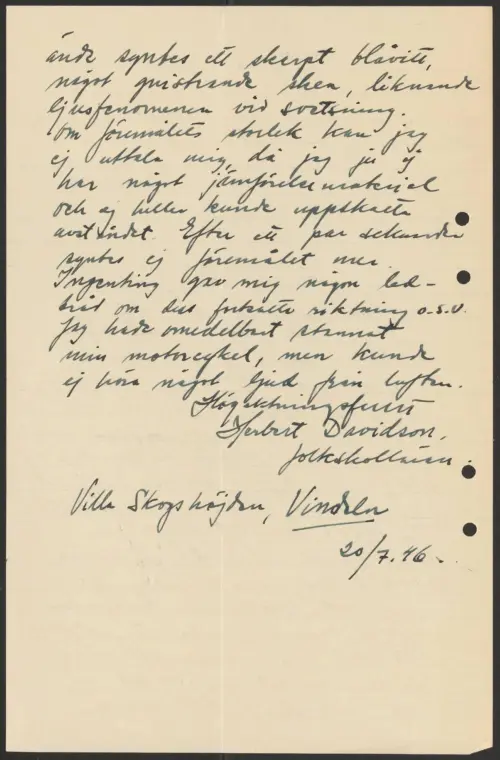 ände syntes ett skarpt blåvitt,
något gnistrande sken, liknande
ljusfenomenen vid svetsning.
Om föremålets storlek kan jag
ej uttala mig, då jag ju ej
har något jämförelsematerjel
och ej heller kunde uppskatta
avståndet. Efter ett par sekunder
syntes ej föremålet mer.
Ingenting gav mig någon led-
tråd om dess fortsatta riktning o.s.v.
Jag hade omedelbart stannat
min motorcykel, men kunde
ej höra något ljud från luften.
Högaktningsfullt
Herbert Davidson,
folkskollärare.
Villa Skogshöjden, Vindeln
20/7.46.